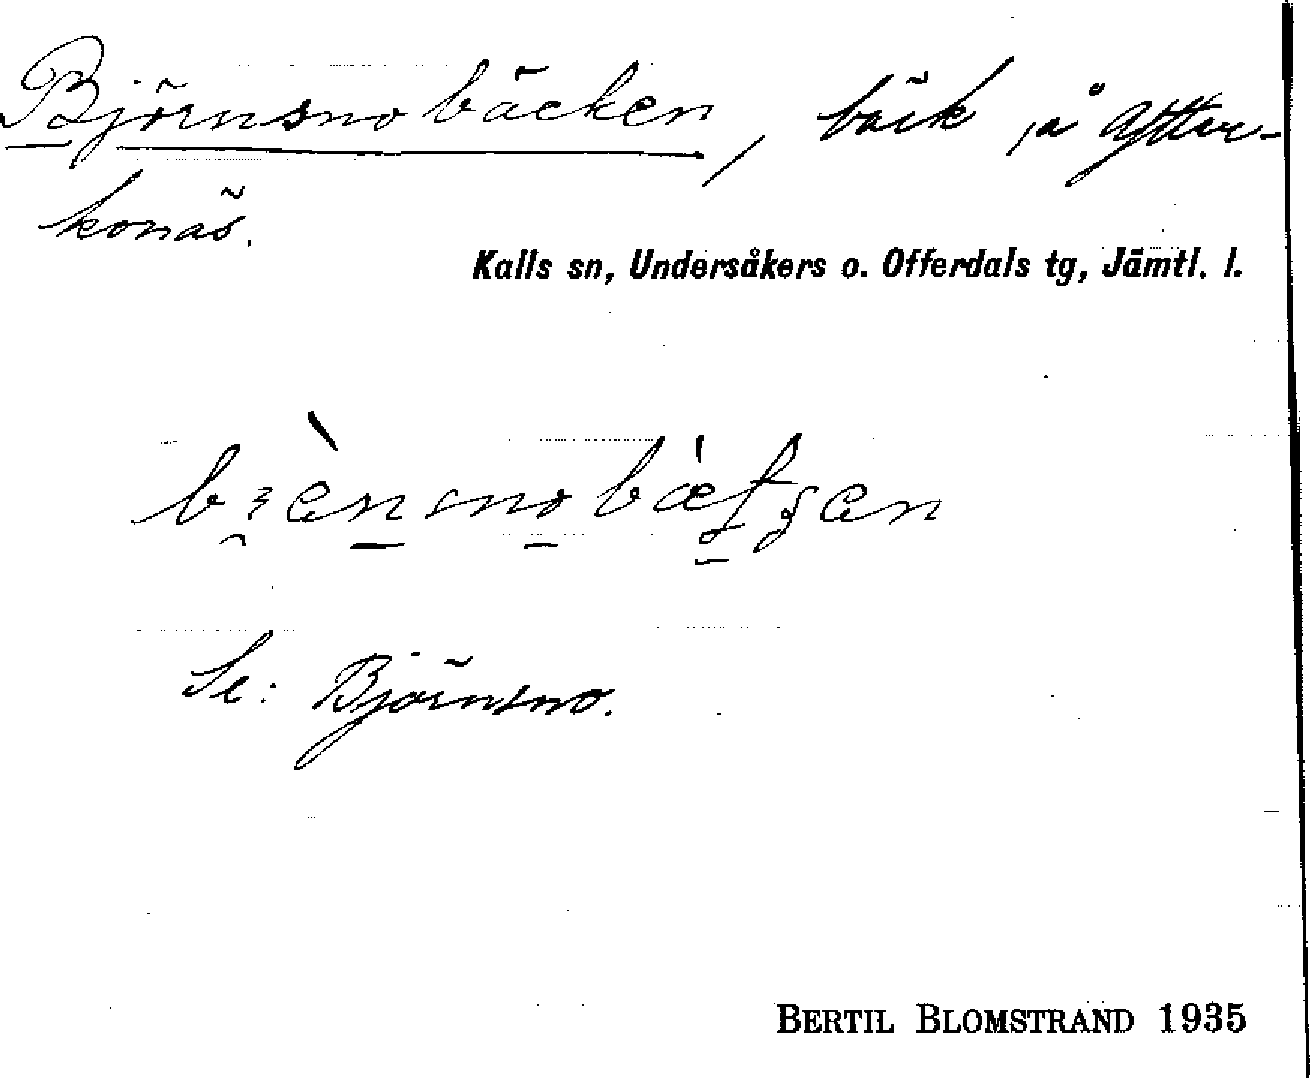 Björnsnobäcken, bäck å Ytter-
konäs.
Kalls sn, Undersåkers o. Offerdals tg, Jämtl. l.
Se: Björnsno.
BERTIL BLOMSTRAND 1935